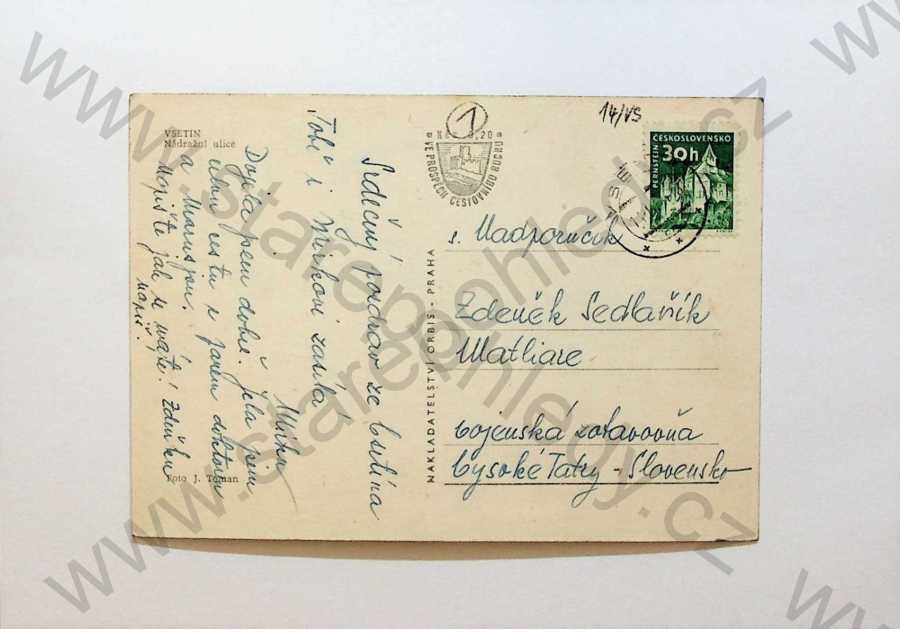 VSETÍN
Nádražní ulice
Srdečný pozdrav ze Vsetína
Tobě i Mirkovi zasílá
Dojela jsem dobře. Jela jsem
celou cestu s panem doktorem
a
Napište jak se máte! Zdeňku
napiš!
Foto J. Toman
NAKLADATELSTVÍ ORBIS - PRAHA
1
Kčs 0,20
VE PROSPĚCH CESTOVNÍHO RUCHU
14/VS
ČESKOSLOVENSKO
PERNŠTEJN
30h
s. Nadporučík
Zdeněk Sedlařík
Matliare
Vojenská zotavovňa
Vysoké Tatry - Slovensko
www.starepohledy.cz
www.starepohledy.cz